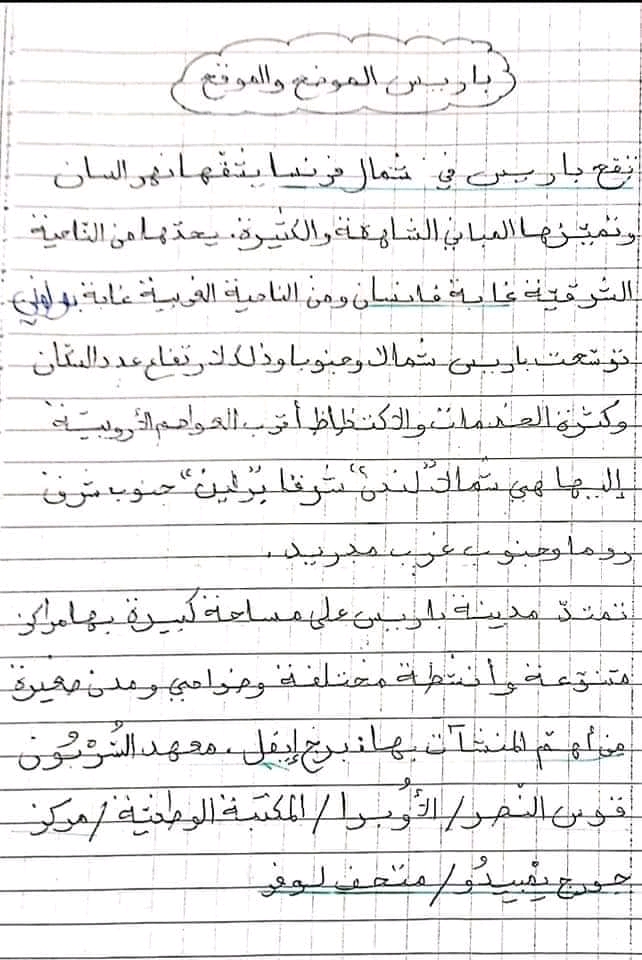 باريس الموضع والموقع
تقع باريس في شمال فرنسا يشقها نهر السان
وتميّزها المباني الشاهقة والكثيرة. يحدّها من الناحية
الشرقيّة غابة فانسان ومن الناحية الغربية غابة بولوني
توسّعت باريس شمالا وجنوبا وذلك لارتفاع عدد السكّان
وكثرة الخدمات والاكتظاظ أقرب العواصم الأروبيّة
إليها هي شمالا "لندن" شرقا "برلين" جنوب شرق
روما وجنوب غرب مدريد.
تمتدّ مدينة باريس على مساحة كبيرة بها مراكز
متنوّعة وأنشطة مختلفة وضواحي ومدن صغيرة
من أهمّ المنشآت بها: برج إيفل. معهد السُّرْبُون
قوس النصر/ الأُوبرا/ المكتبة الوطنيّة/ مركز
جورج بمبيدُو/ متحف لوفر